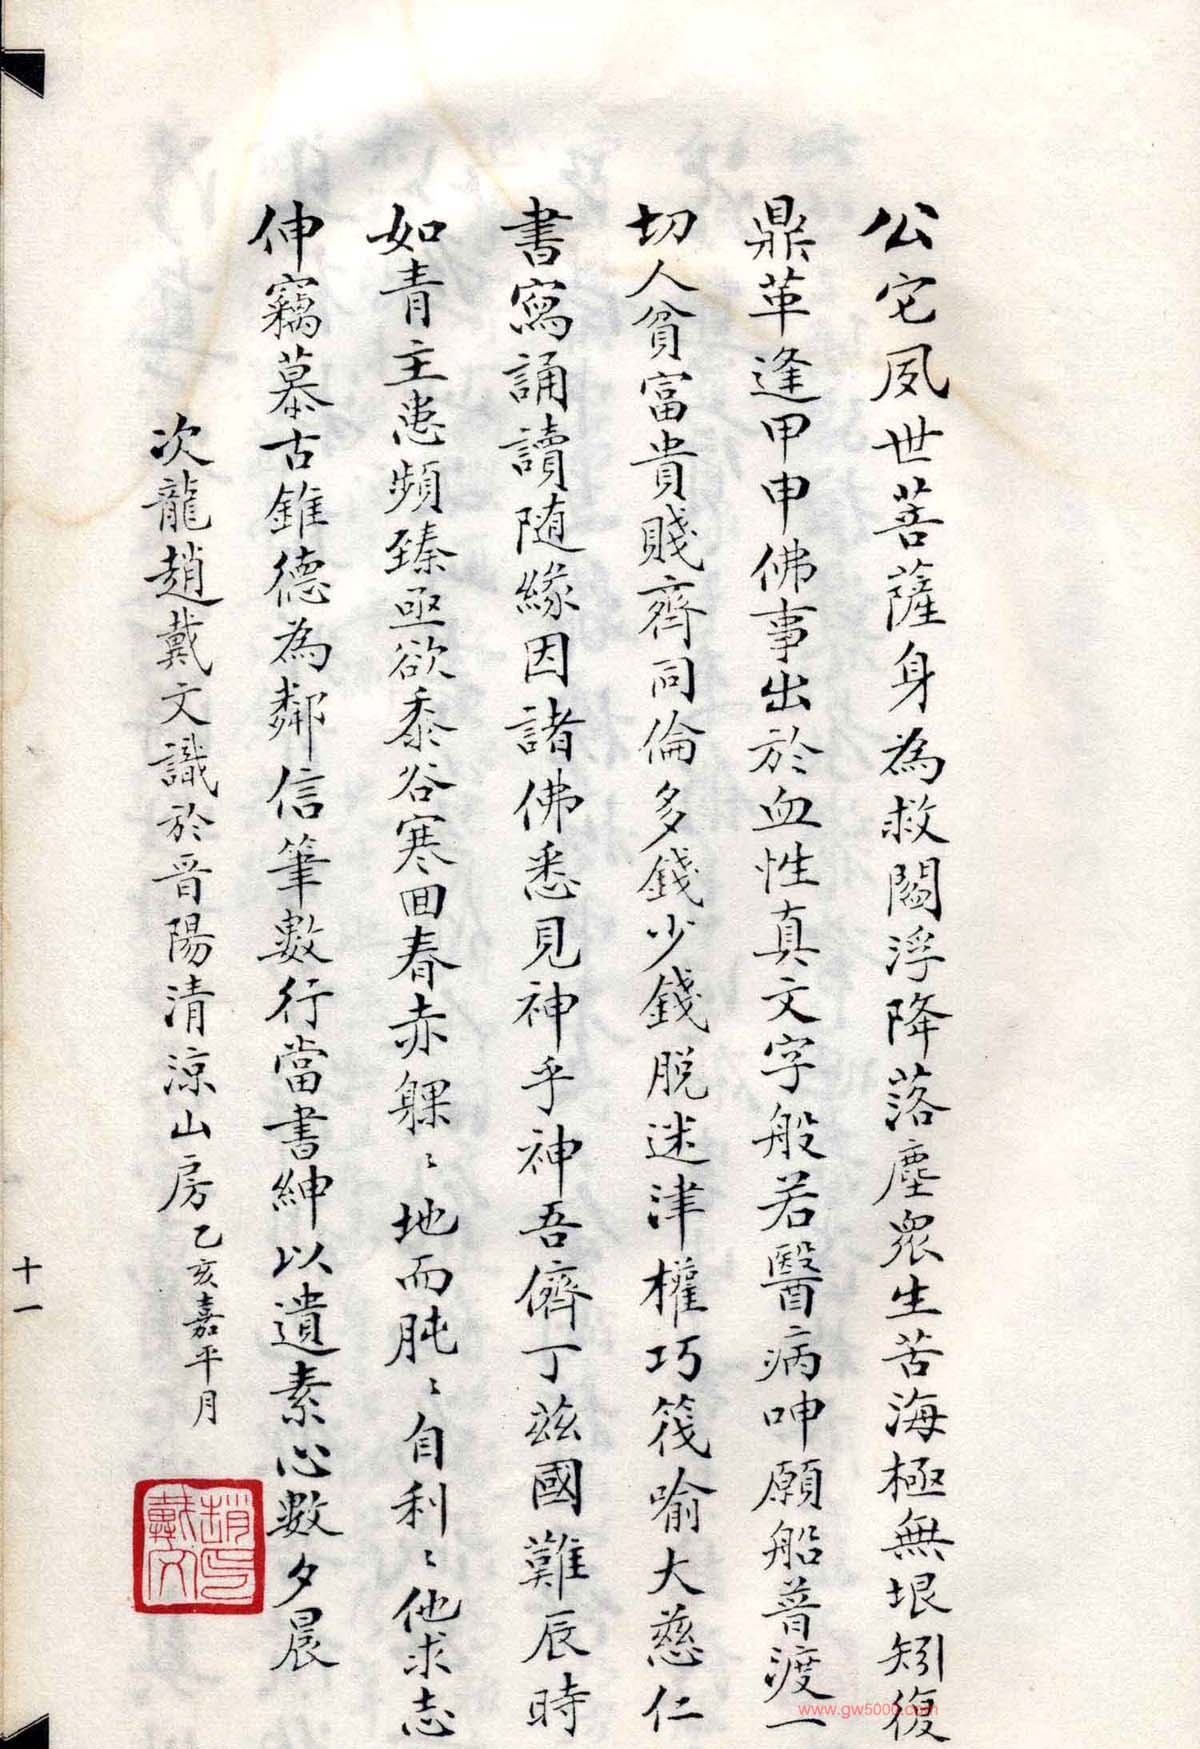 公它夙世菩薩身為救閻浮降落塵眾生苦海極無垠矧復
鼎革逢甲申佛事出於血性真文字般若醫病呻願船普渡一
切人貧富貴賤齊同倫多錢少錢脫迷津權巧筏喻大慈仁
書寫誦讀随緣因諸佛悉見神乎神吾儕丁茲國難辰時
如青主患頻臻亟欲黍谷寒回春赤躶〻地而肫〻自利〻他求志
伸竊慕古錐德為鄰信筆數行當書紳以遺素心數夕晨
次龍趙戴文識於晋陽清涼山房乙亥嘉平月
趙戴文印
十一
www.gw5000.com